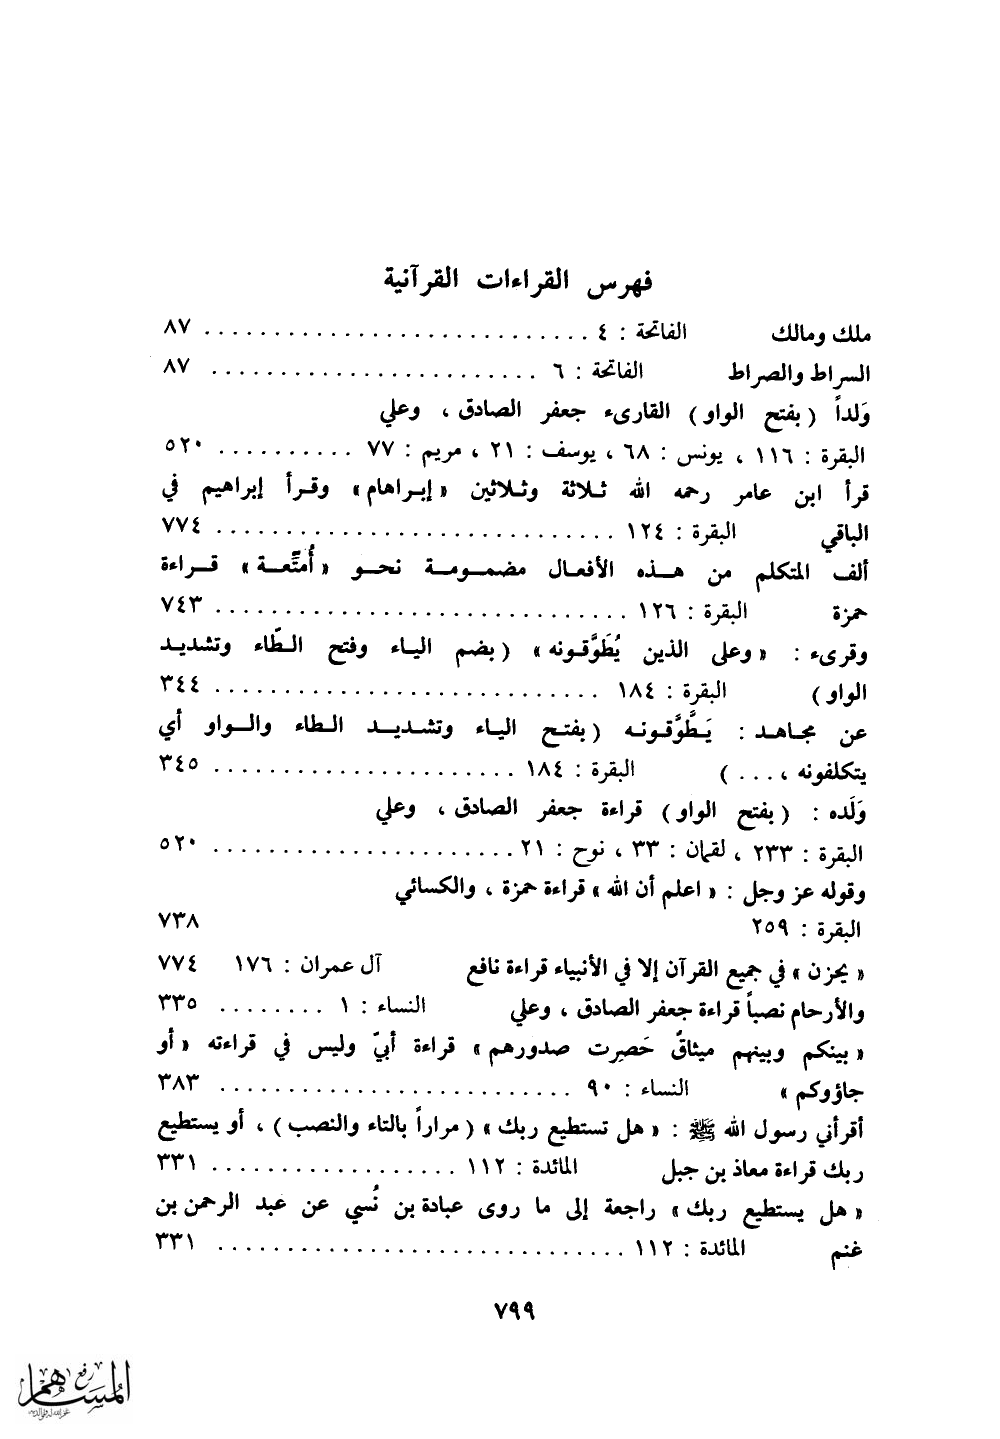 فهرس القراءات القرآنية
ملك ومالك الفاتحة : ٤ . . . . . . . . . . . . . . . . . . . . . . . . . . . ٨٧
السراط والصراط الفاتحة : ٦ . . . . . . . . . . . . . . . . . . . . . . . ٨٧
وَلداً ( بفتح الواو ) القارىء جعفر الصادق ، وعلي
البقرة : ١١٦ ، يونس : ٦٨ ، يوسف : ٢١ ، مريم : ٧٧ . . . . . . . . . . ٥٢٠
قرأ ابن عامر رحمه الله ثلاثة وثلاثين « إبراهام » وقرأ إبراهيم في
الباقي البقرة : ١٢٤ . . . . . . . . . . . . . . . . . . . . . . . . . . . . ٧٧٤
ألف المتكلم من هذه الأفعال مضمومة نحو « أُمتِّعة » قراءة
حمزة البقرة : ١٢٦ . . . . . . . . . . . . . . . . . . . . . . . . . . . . . ٧٤٣
وقرىء : « وعلى الذين يُطَوَّقونه » ( بضم الياء وفتح الطّاء وتشديد
الواو ) البقرة : ١٨٤ . . . . . . . . . . . . . . . . . . . . . . . . . . . ٣٤٤
عن مجاهد : يَطَّوَّقونه ( بفتح الياء وتشديد الطاء والواو أي
يتكلفونه ، . . . ) البقرة : ١٨٤ . . . . . . . . . . . . . . . . . . . . . . ٣٤٥
وَلَده : ( بفتح الواو ) قراءة جعفر الصادق ، وعلي
البقرة : ٢٣٣ ، لقمان : ٣٣ ، نوح : ٢١ . . . . . . . . . . . . . . . . . . . . . . ٥٢٠
وقوله عز وجل : « اعلم أن الله » قراءة حمزة ، والكسائي
البقرة : ٢٥٩ ٧٣٨
« يحزن » في جميع القرآن إلا في الأنبياء قراءة نافع آل عمران : ١٧٦ ٧٧٤
والأرحام نصباً قراءة جعفر الصادق ، وعلي النساء : ١ . . . . . . . . ٣٣٥
« بينكم وبينهم ميثاقٌ حَصِرت صدورهم » قراءة أبيّ وليس في قراءته « أو
جاؤوكم » النساء : ٩٠ . . . . . . . . . . . . . . . . . . . . . . . . . ٣٨٣
أقرأني رسول الله ﷺ : « هل تستطيع ربك » ( مراراً بالتاء والنصب ) ، أو يستطيع
ربك قراءة معاذ بن جبل المائدة : ١١٢ . . . . . . . . . . . . . . . . . . ٣٣١
« هل يستطيع ربك » راجعة إلى ما روى عبادة بن نُسي عن عبد الرحمن بن
غنم المائدة : ١١٢ . . . . . . . . . . . . . . . . . . . . . . . . . . . . . ٣٣١
٧٩٩